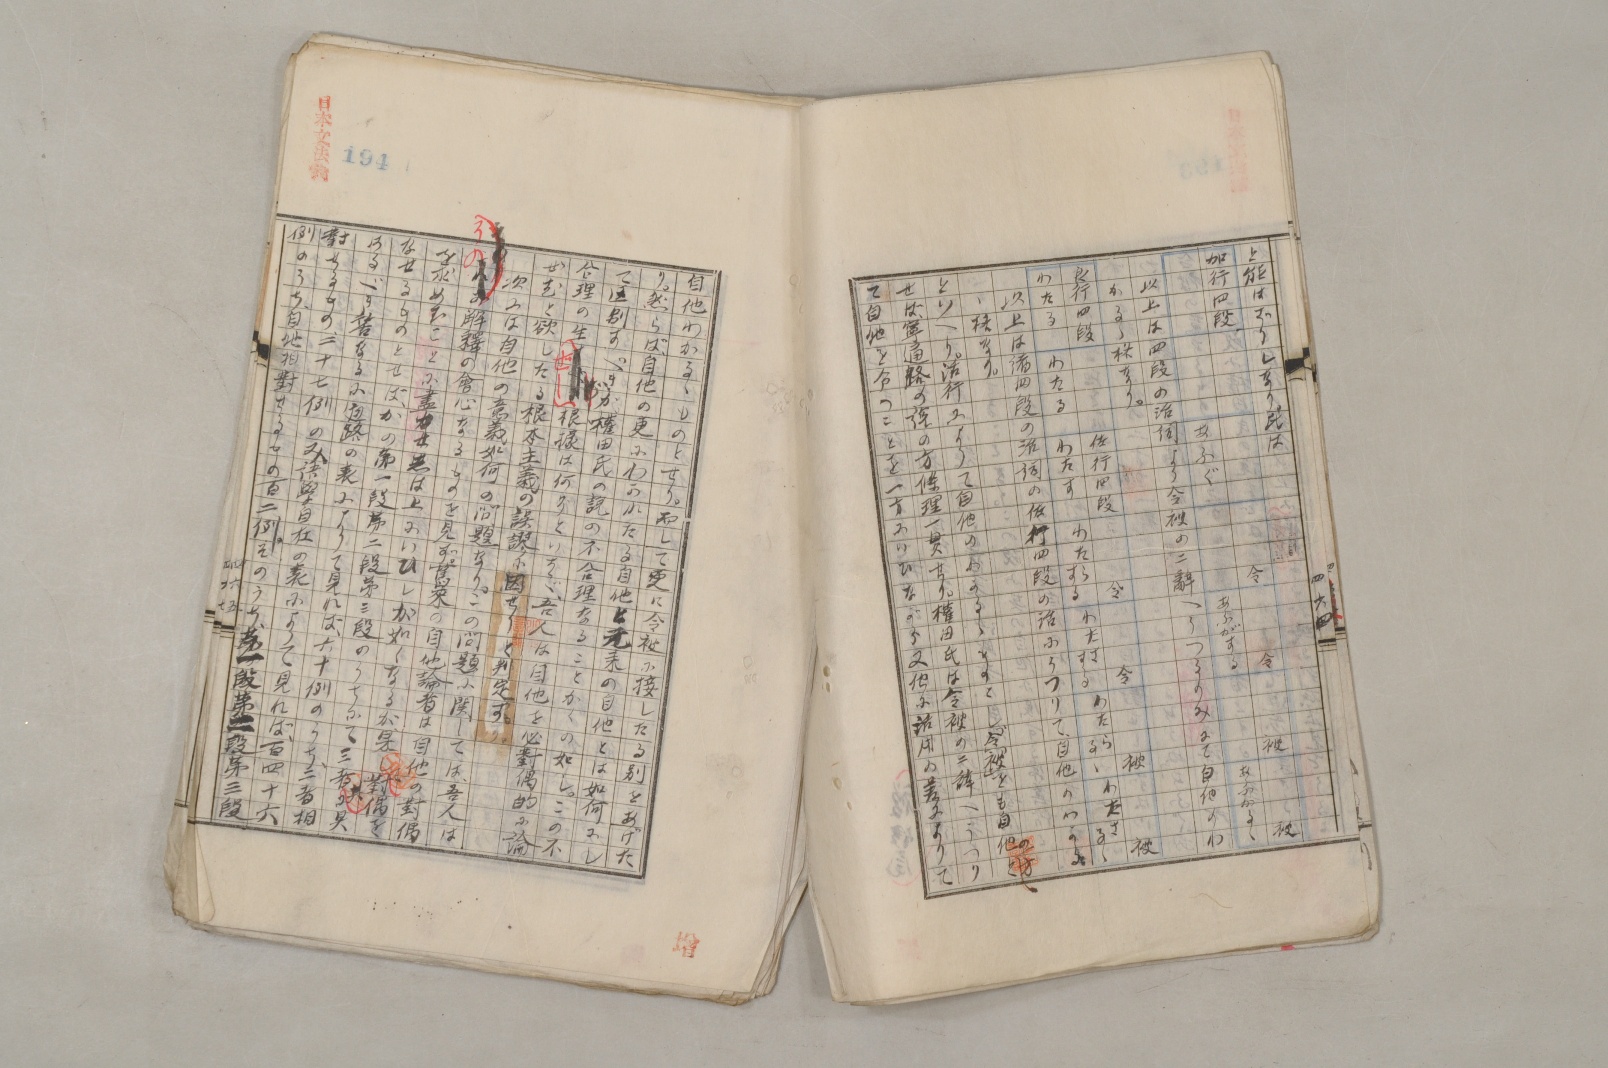 四六四
上能はざりしなり氏は
加行四段 あふぐ 令 あふがする 令 被 あふがるゝ 被
かるゝ 様なり。
以上は四段の活詞より令被の二辭へうつるのみにて自他のわ
良行四段 佐行四段 令 令 被 被
わたる わたる わたす わたらする わたさする わたらるゝ わたさるゝ
以上は諸四段の活詞の佐行四段の活にうつりて、自他のわかる
ゝ様なり。
といへり。活行によりて自他のわかるゝとすと、令被をも自他と
せば、軍通路の説の方條理一貫せり。權田氏は令被の二辭へうつり
て自他を令のことを一方にいひながら又他に活用の差によりて
日本文法論
194
自他わかるゝものとせり。而して更に令被に接したる別をあげた
り。然らば、自他の更にわかれたる自他と元来の自他とは如何にし
て區別すべきか權田氏の説の不合理なることかくの如し。この不
合理の生せし根據は何ぞといふに、吾人は自他を必對偶的に論
ぜむと欲したる根本主義の誤謬に因せりと判定す。
次には自他の意義如何の問題なり。この問題に關しては、吾人は
その解釋の會心なるものを見ず。從來の自他論者は自他の對偶
を求めむことに盡力せしは上にいひしが如くなるが、果して對偶を
なせるものとせばかの第一段第二段第三段のうちにて三者具
はるべき筈なるに通路の表によりて見れば、六十例のうち、三者相
對せるもの二十七例のみ、詞學自在の表によりて見れば、百四十六
例のうち、自他相對せるもの百二例、そのうち、第一段第二段第三段
増